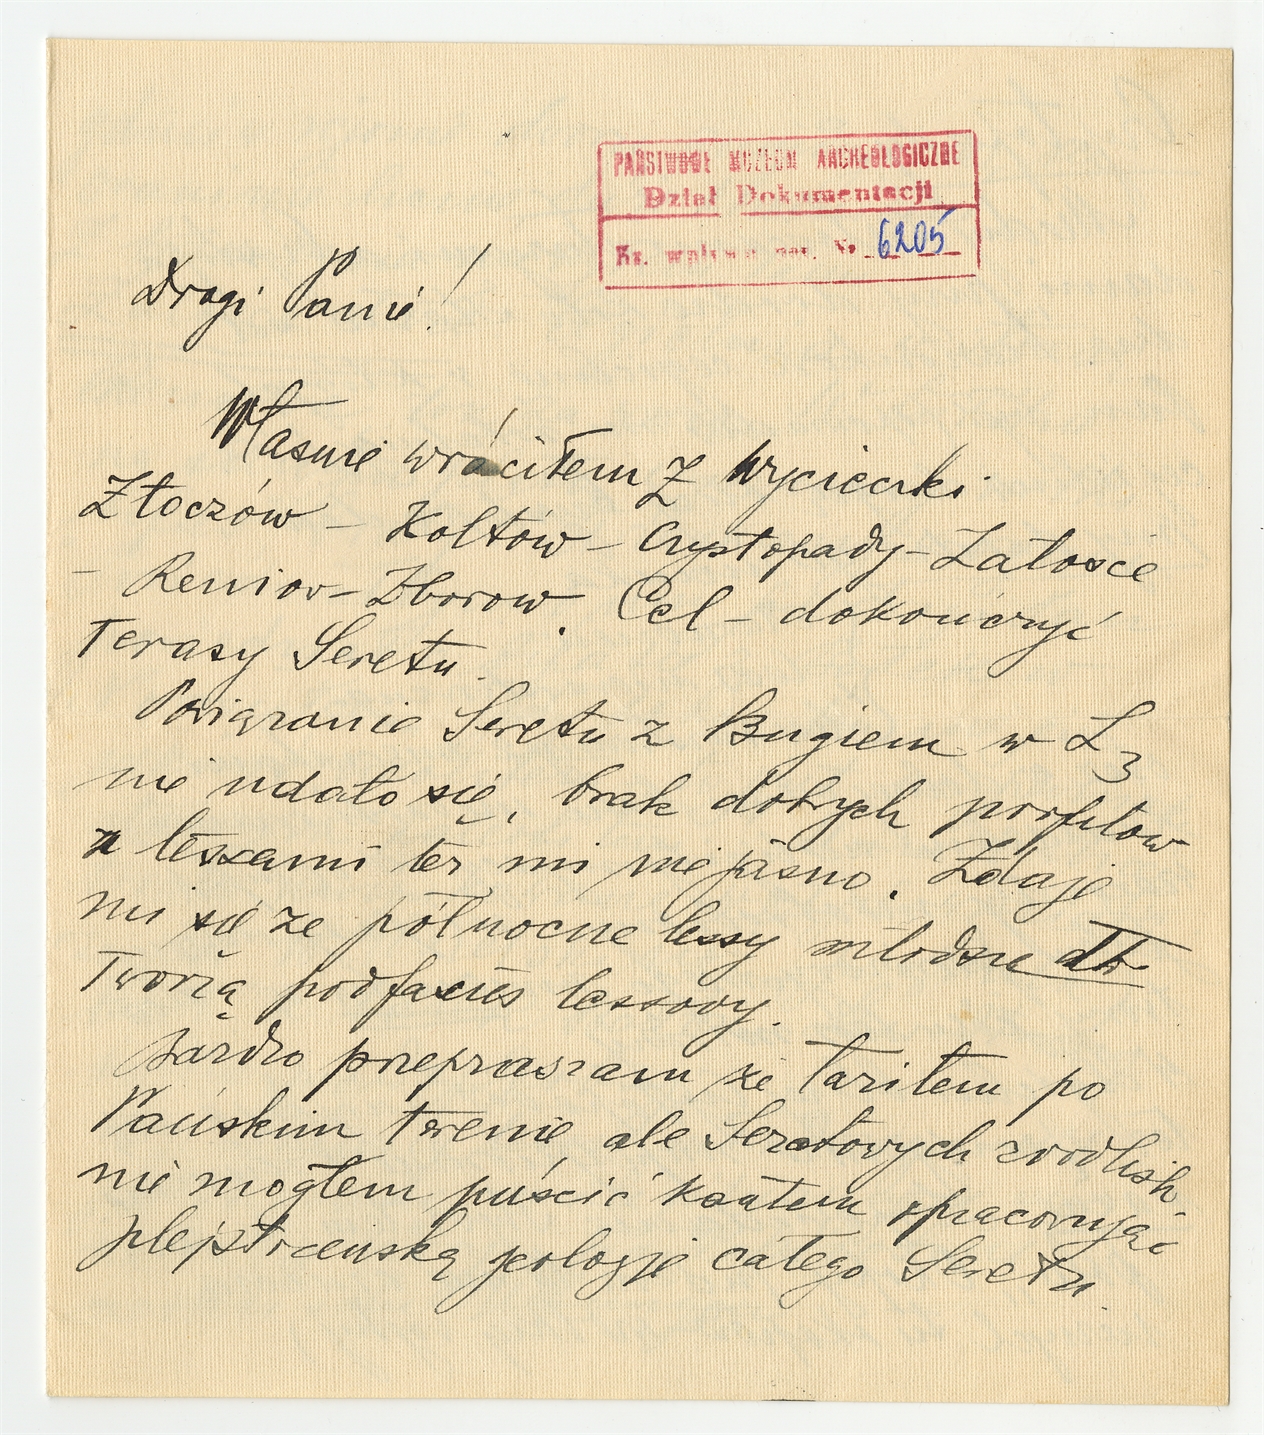 PAŃSTWOWE MUZEUM ARCHEOLOGICZNE
Dział Dokumentacji
Ks. wpływu poz. Nr 6205
Drogi Panie!
Własnie wróciłem z wycieczki
Złoczów – Kołtów – Czystopady – Załośce
– Reniov – Zborow. Cel – dokończyć
Terasy Seretu.
Powiązanie Seretu z Bugiem w L3
nie udało się, brak dobrych profilow
z lessami też mi niejasno. Zdaje
mi się ze północne lessy młodsze
Tworzą podfacies lessowy.
Bardzo przepraszam że łaziłem po
Pańskim terenie, ale Seretowych zrodlisk
nie mogłem puścić kantem opracowując
plejstoceńską geologję całego Seretu.